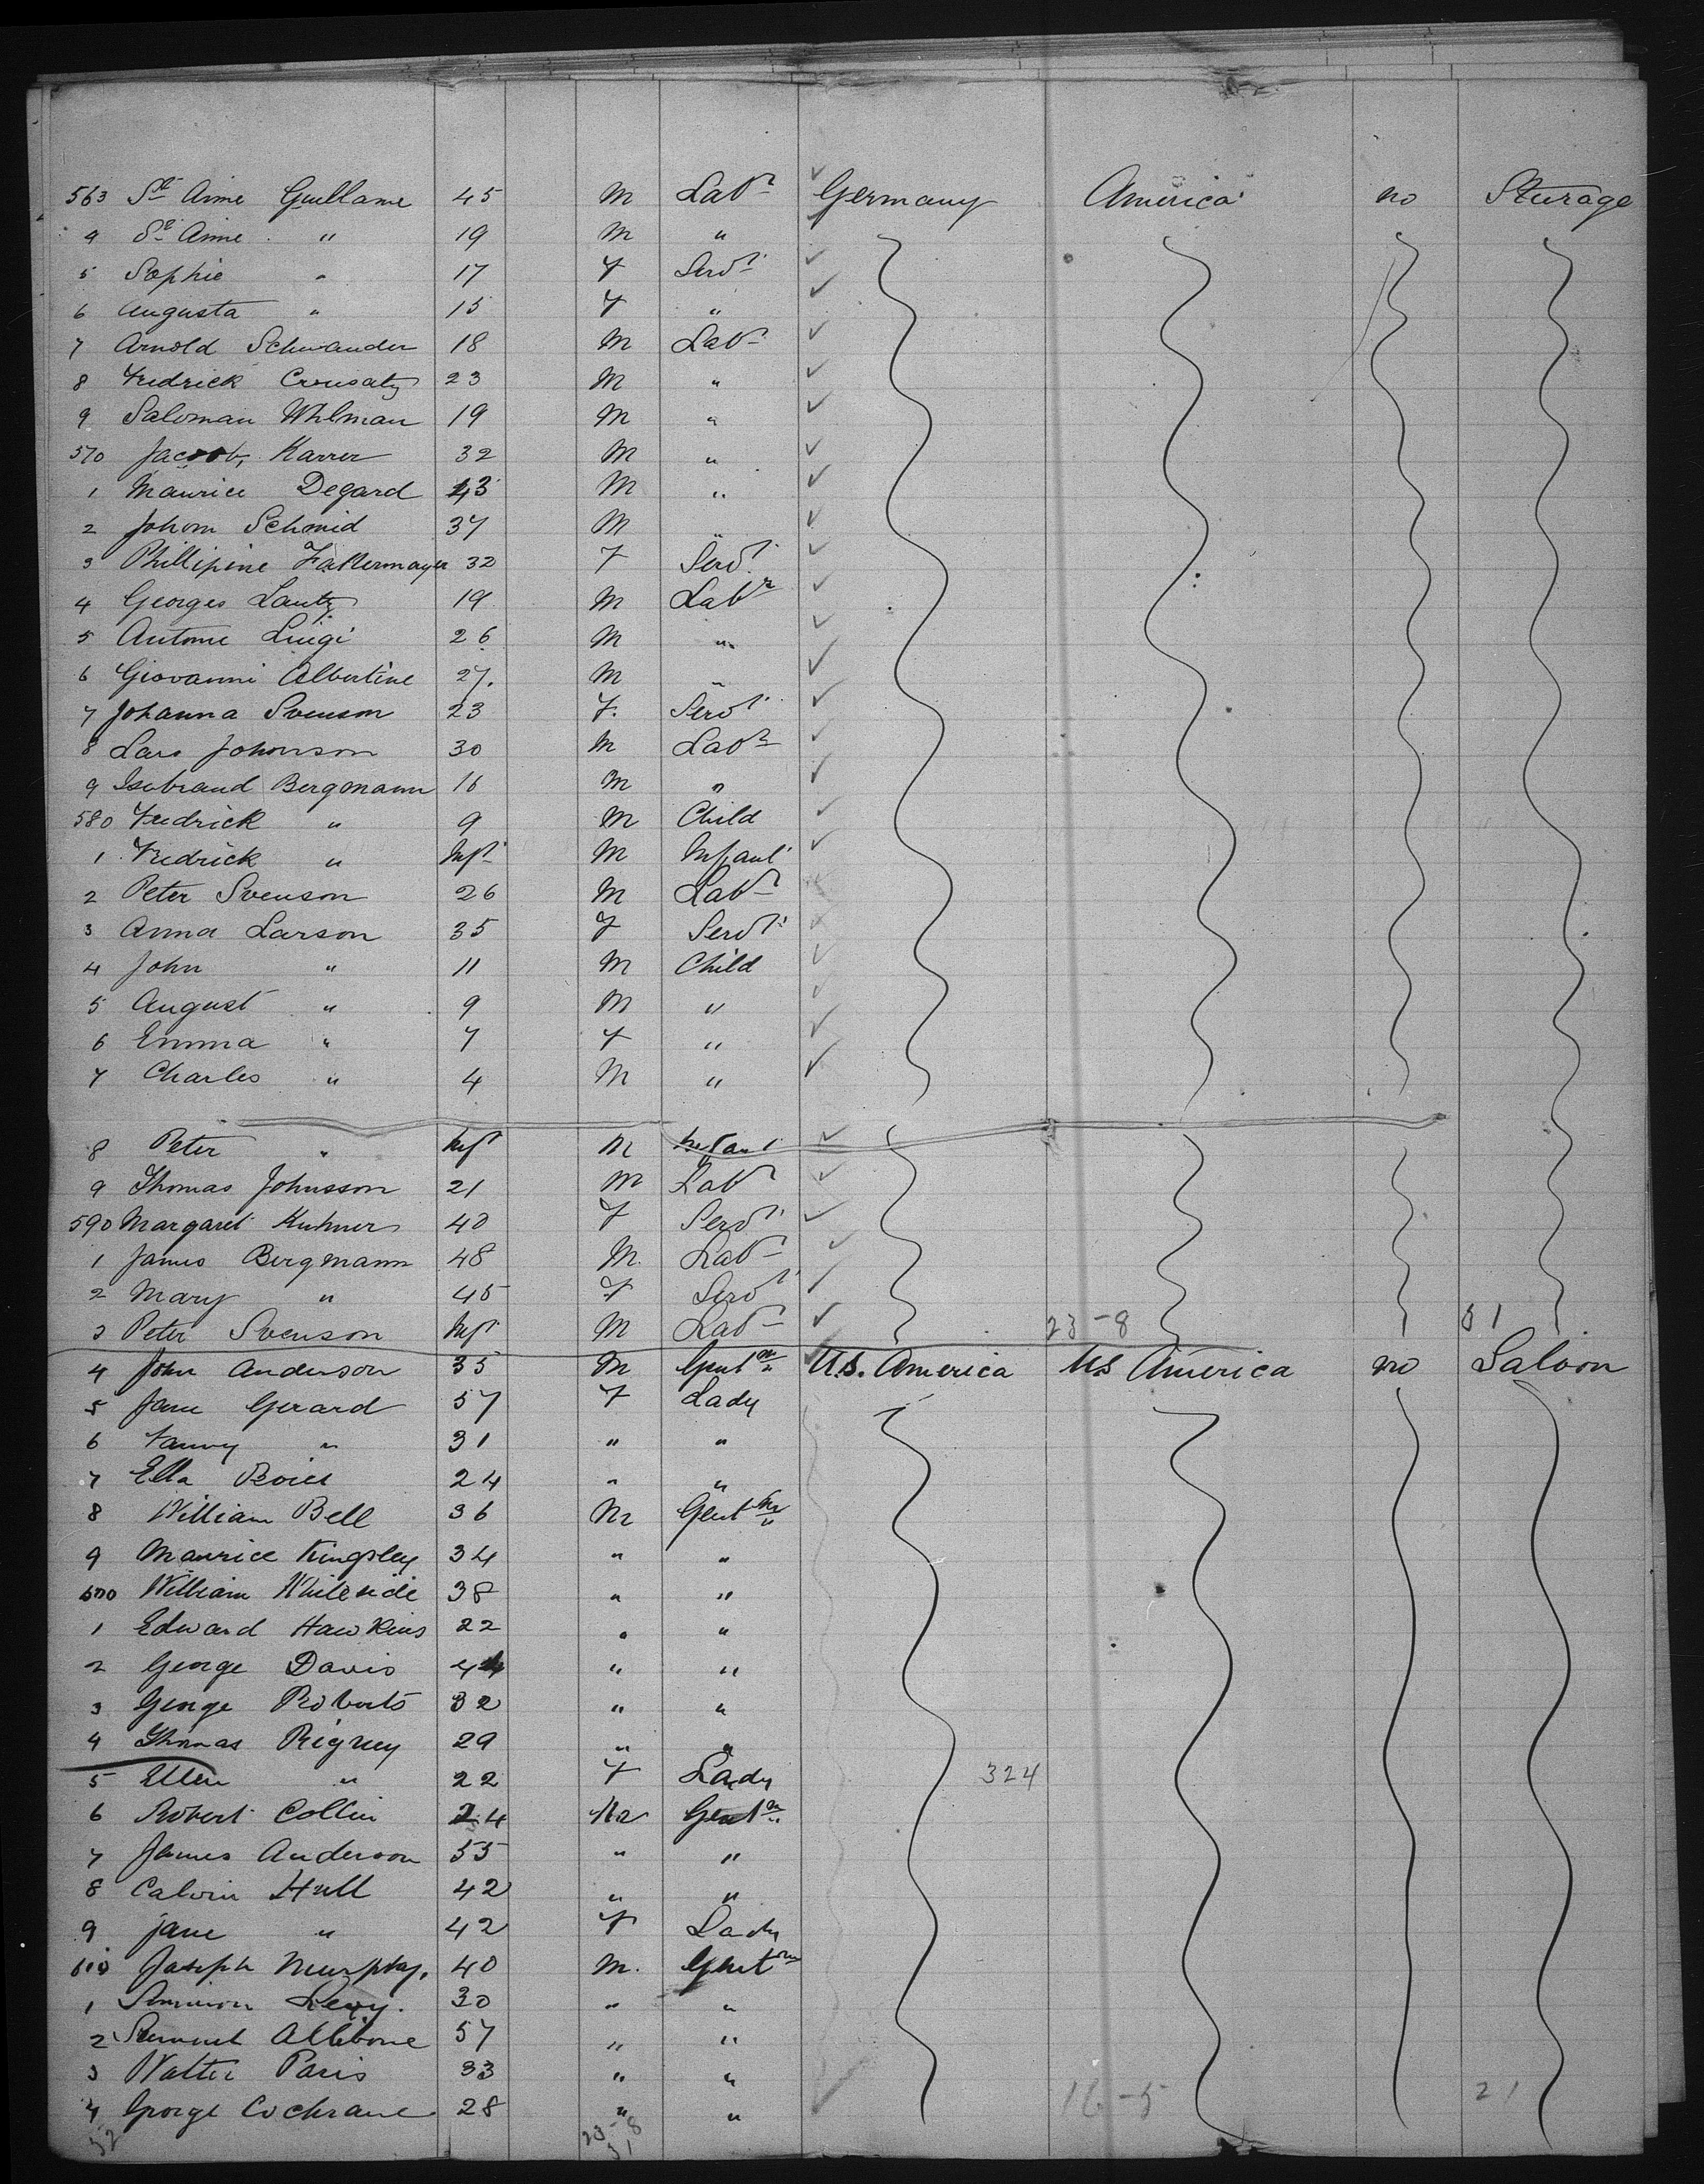 563 St Aime Guillame 45 M Labr Germany America no Sturage
4 St Aime " 19 M "
5 Sophie " 17 F Servt
6 Augusta " 15 F "
7 Arnold Schwander 18 M Labr
8 Fredrick Crousatz 23 M "
9 Saloman Whlman 19 M "
570 Jacob Karrer 32 M "
1 Maurice Degard 43 M "
2 Johom Schmid 37 M "
3 Phillipine Fakermayer 32 F Servt
4 Georges Lautz 19 M Labr
5 Antome Luigi 26 M "
6 Giovanni Albertine 27. M "
7 Johanna Svenson 23 F. Servt
8 Lars Johonson 30 M Labr
9 Isebrand Bergmann 16 M "
580 Fredrick " 9 M Child
1 Fredrick " Inft M Infant
2 Peter Svenson 26 M Labr
3 Anna Larson 35 F Servt
4 John " 11 M Child
5 August " 9 M "
6 Emma " 7 F "
7 Charles " 4 M "
8 Peter " Inft M Infant
9 Thomas Johnsson 21 M Labr
590 Margaret Kuhner 40 F Servt
1 James Bergmann 48 M. Labr
2 Mary " 45 F Servt
3 Peter Svenson Inft M Labr 23-8 31
4 John Anderson 35 M Gentmn U.S. America U.S America no Saloon
5 Jane Gerard 57 F Lady
6 Fanny " 31 " "
7 Ella 24 " "
8 William Bell 36 M Gentmn
9 Maurice Kingsley 34 " "
600 William Whiteside 38 " "
1 Edward Hawkins 22 " "
2 George Davis 44 " "
3 George Roberts 32 " "
4 Thomas Rigney 29 " "
5 Ellen " 22 F Lady 324
6 Robert Collin 24 M Gentmn
7 James Anderson 55 " "
8 Calvin Hull 42 " "
9 Jane " 42 F Lady
610 Joseph Murphy. 40 M. Gentmn
1 Levy. 30 " "
2 Samuel Allibone 57 " "
3 Walter Paris 33 " "
4 George Cochrane 28 " " 16-5 21
52 23-8
31